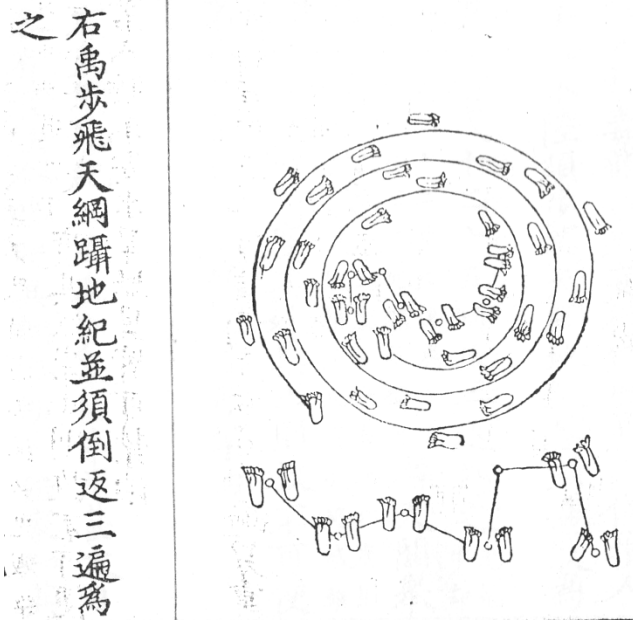 右禹步飛天綱躡地紀並須倒返三遍為
之